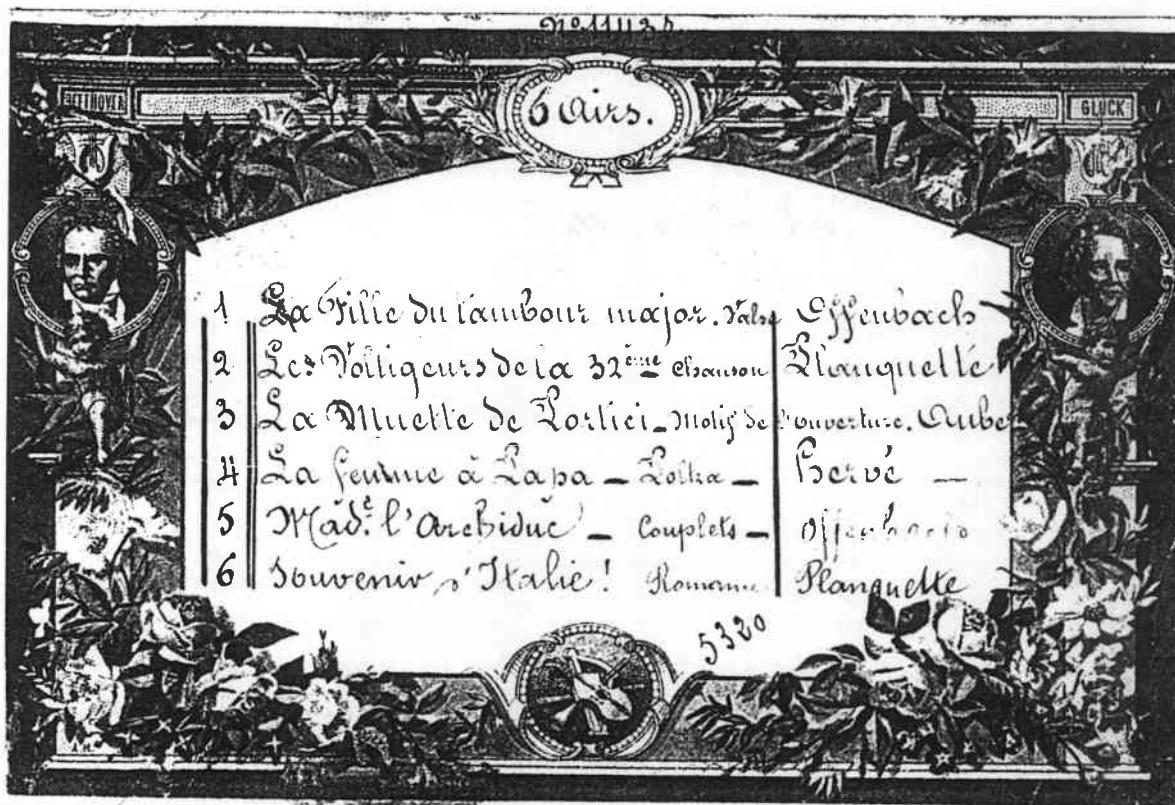 BEETHOVEN
GLUCK
6 Airs.
1 La Fille du tambour major. Valse Offenbach
2 Les Voltigeurs de la 32ème Chanson Planquette
3 La Muette de Portici - Motif de l'ouverture. Auber
4 La femme à Papa - Polka - Hervé -
5 Made. l'Archiduc - Couplets - Offenbach
6 Souvenir d'Italie! Romance Planquette
5320